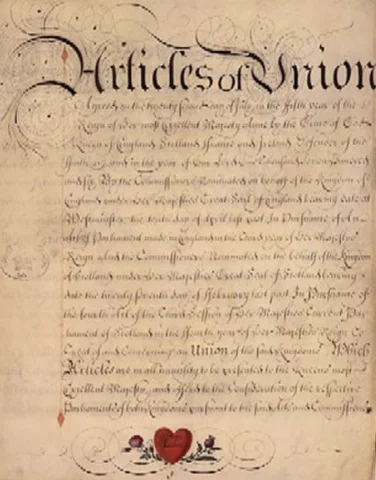 Articles of Union
Agreed on the twenty Second day of July in the fifth year of the
Reign of Her most Excellent Majesty Anne by the Grace of God
Queen of England Scotland France and Ireland Defender of the
and in the year of Our Lord One thousand Seven hundred
and Six By the Commissioners Nominated on behalf of the Kingdom of
England under Her Majesties Great Seal of England bearing date at
Westminster the tenth day of April last past In Pursuance of
of Parliament made in England in the third year of Her Majesties
Reign and the Commissioners Nominated on the behalf of the Kingdom
of Scotland under Her Majesties Great Seal of Scotland bearing
date the twenty Seventh day of February last past In Pursuance of
the fourth Act of the third Session of Her Majesties Current Par-
liament of Scotland in the fourth year of Her Majesties Reign to
Treat of and Concerning an Union of the said Kingdoms Which
Articles are in all humility to be presented to the Queens most
Excellent Majesty and offered to the Consideration of the respective
Parliaments of both Kingdoms pursuant to the said Acts and Commissions